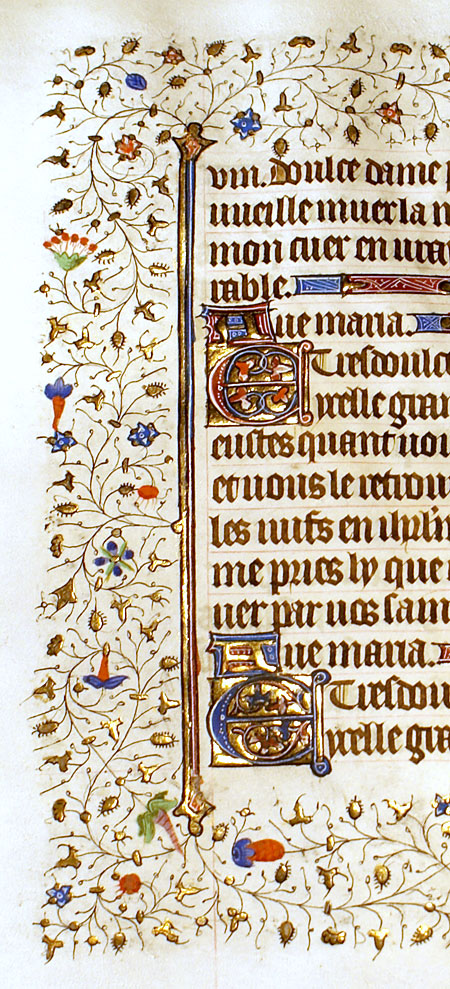 uin. Doulce dame p
uueille muer la m
mon cuer en uray
rable.
Aue maria.
E Tresdoulce
yrelle gran
eustes quant uou
et uous le retrou
les iuifs en ihrl'm
me pries ly que
uer par uos sain
Aue maria.
E Tresdou
yrelle gra